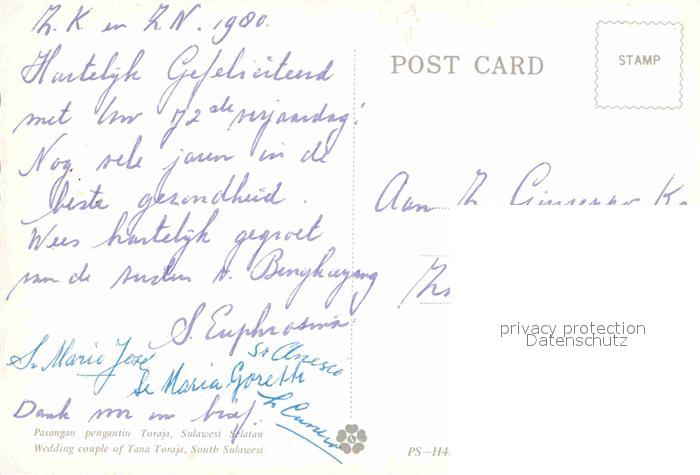 Z.K en Z.N. 1980.
Hartelijk Gefeliciteerd
met Uw 72ste verjaardag!
Nog vele jaren in de
beste gezondheid.
Wees hartelijk gegroet
van de zusters v. Bengkayang
S. Euphrosine
Sr Marie José
Sr Maria Goretti
Dank voor uw brief.
Pasangan pengantin Toraja, Sulawesi Selatan
Wedding couple of Tana Toraja, South Sulawesi.
POST CARD
STAMP
Aan Z.
privacy protection
Datenschutz
PS-H4